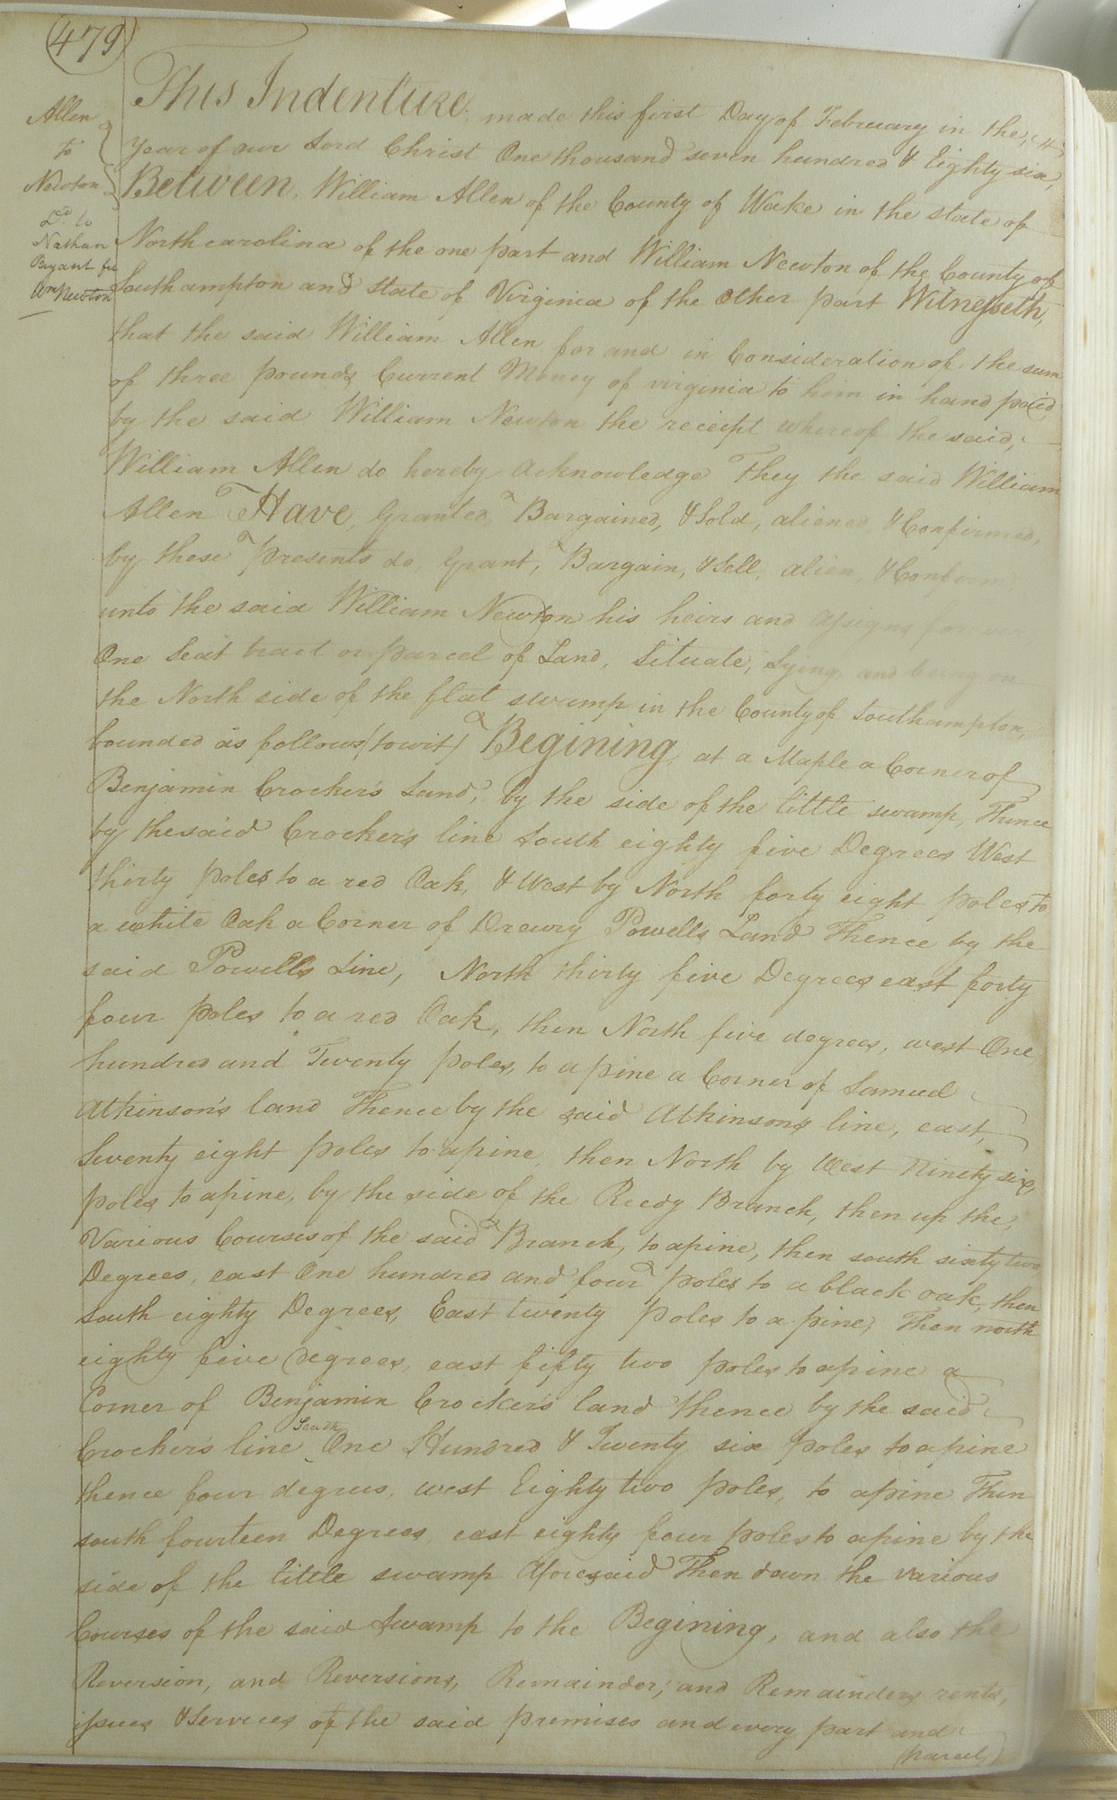 479
Allen
to
Newton
Dd to
Nathan
Bryant for
Wm Newton
This Indenture, made this first Day of February in the
Year of our Lord Christ One thousand seven hundred & Eighty six,
Between, William Allen of the County of Wake in the state of
Northcarolina of the one part and William Newton of the County of
Southampton and state of Virginia of the Other part Witnesseth,
that the said William Allen for and in Consideration of the sum
of three pounds Current Money of virginia to him in hand paid
by the said William Newton the receipt whereof the said,
William Allen do hereby Acknowledge They the said William
Allen Have, Granted, Bargained, & Sold, aliened, & Confirmed,
by these presents do, Grant, Bargain, & Sell, alien, & Confirm
unto the said William Newton his heirs and assigns forever
One Seat tract or parcel of Land, Situate, Lying, and being on
the North side of the flat swamp in the County of Southampton,
bounded as follows (towit) Begining, at a Maple a Corner of
Benjamin Crocker's Land, by the side of the little swamp, Thence
by the said Crocker's line South eighty five Degrees West
thirty poles to a red Oak, & West by North forty eight poles to
a white Oak a Corner of Drewry Powells Land Thence by the
said Powells Line, North thirty five Degrees east forty
four poles to a red Oak, then North five degrees, west One
hundred and Twenty poles, to a pine a Corner of Samuel
Atkinson's land Thence by the said Atkinsons line, east,
Seventy eight poles to a pine, then North by West Ninety six,
poles to a pine, by the side of the Reedy Branch, then up the,
Various Courses of the said Branch, to a pine, then south sixty two
Degrees, east One hundred and four poles to a black oak, then
South eighty Degrees, East twenty poles to a pine, Then north
eighty five Degrees, east fifty two poles to a pine a
Corner of Benjamin Crocker's land thence by the said
South
Crocker's line One Hundred & Twenty six poles to a pine
thence four degrees, west Eighty two poles, to a pine Then
south fourteen Degrees east eighty four poles to a pine by the
side of the little swamp Aforesaid Then down the various
Courses of the said Swamp to the Begining, and also the
Reversion, and Reversions, Remainder, and Remainders rents,
issues & Services of the said premises and every part and
(parcel)